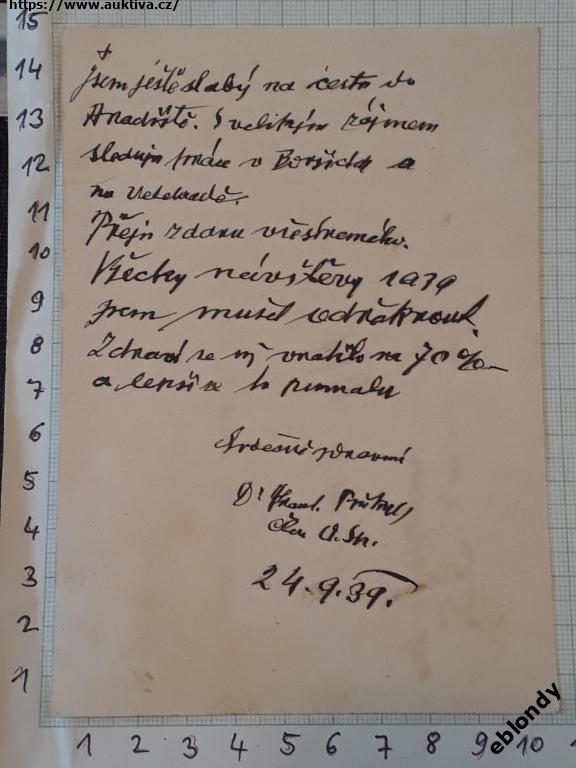 https://www.auktiva.cz/
Jsem ještě slabý na cestu do
S velikým zájmem
sleduji práce v Boršicích a
na Velehradě.
Přeji zdaru všestranného.
Všecky návštěvy 1939
jsem musel odřeknout.
Zdraví se mi vrátilo na 70%
a lepší se to pomalu
Srdečně zdraví
Dr Frant.
24.9.39.
15
14
13
12
11
10
9
8
7
6
5
4
3
2
1
1 2 3 4 5 6 7 8 9 10
eblondy